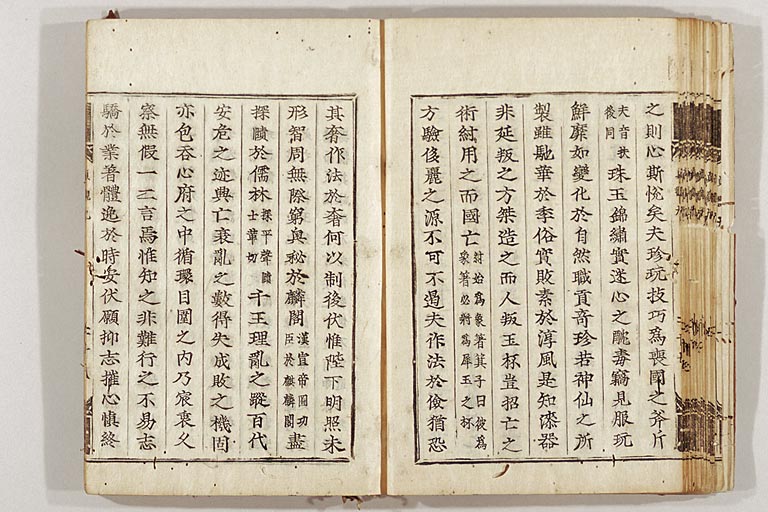 之則心斯悅矣夫珍玩技巧爲喪國之斧斤
夫音扶後同珠玉錦繡實迷心之酖毒竊見服玩
鮮靡如變化於自然職貢奇珍若神仙之所
製雖馳華於季俗實敗素於淳風是知漆器
非延叛之方桀造之而人叛玉杯豈招亡之
術紂用之而國亡紂始爲象著箕子曰彼爲象著必將爲犀玉之杯
方驗侈麗之源不可不遏夫作法於儉猶恐
其奢作法於奢何以制後代惟陛下明照未
形智周無際窮奥秘於麟閣漢宣帝圖功臣於麒麟閣盡
探賾於儒林探平聲賾士革切千王理亂之蹤百代
安危之迹興亡衰亂之數得失成敗之機固
亦包吞心府之中循環目圍之内乃宸衷久
察無假一二言焉惟知之非難行之不易志
驕於業著體逸於時安伏願抑志摧心慎終